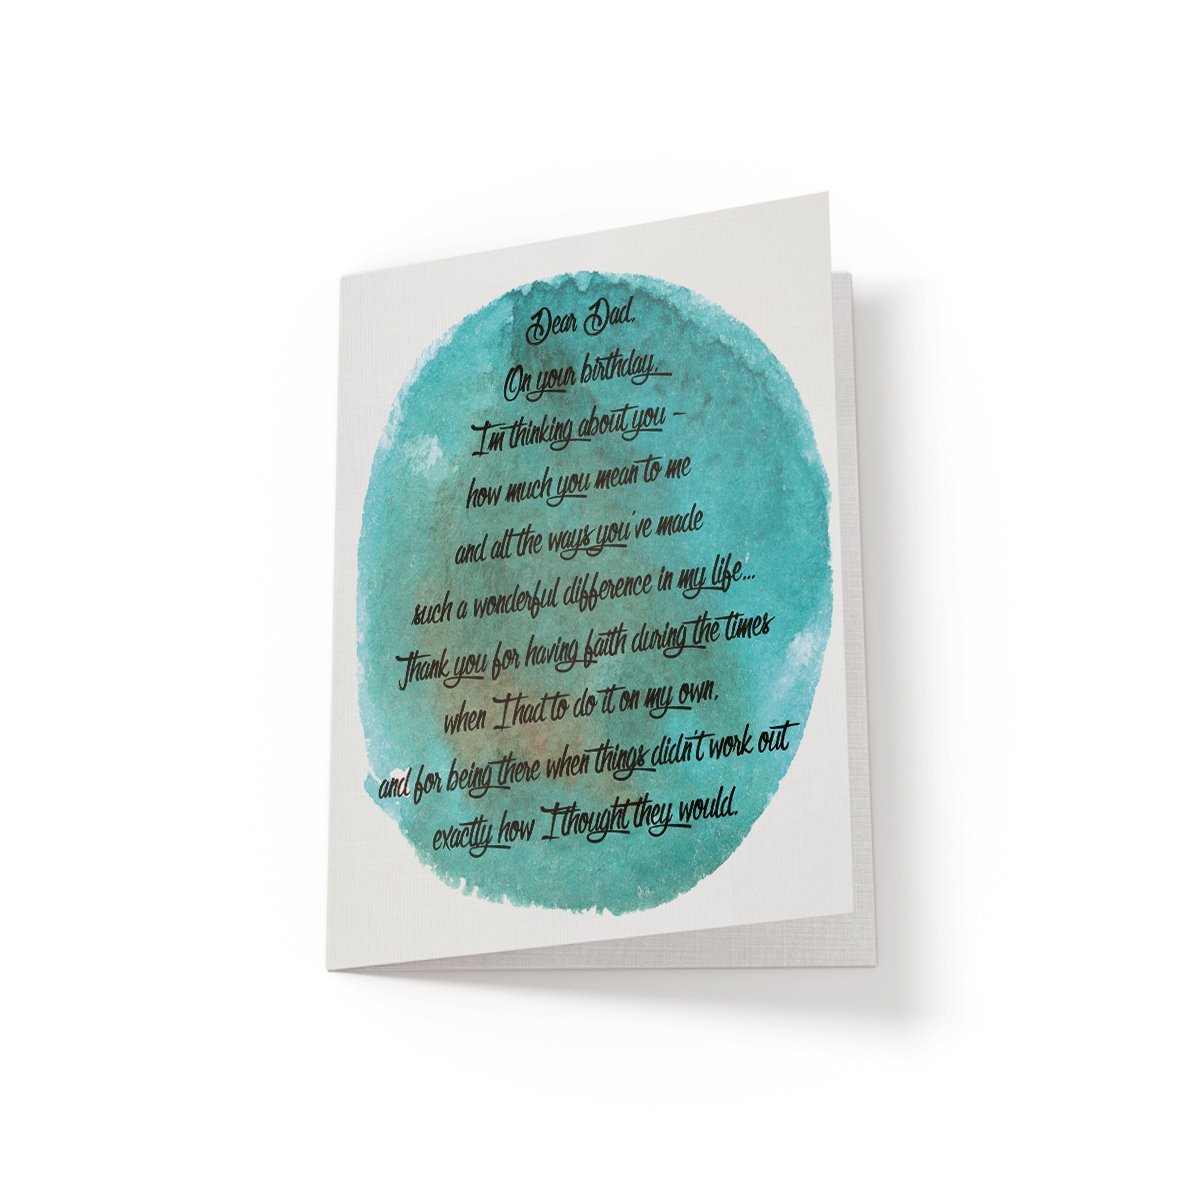 Dear Dad,
On your birthday,
I'm thinking about you –
how much you mean to me
and all the ways you've made
such a wonderful difference in my life...
Thank you for having faith during the times
when I had to do it on my own,
and for being there when things didn't work out
exactly how I thought they would.